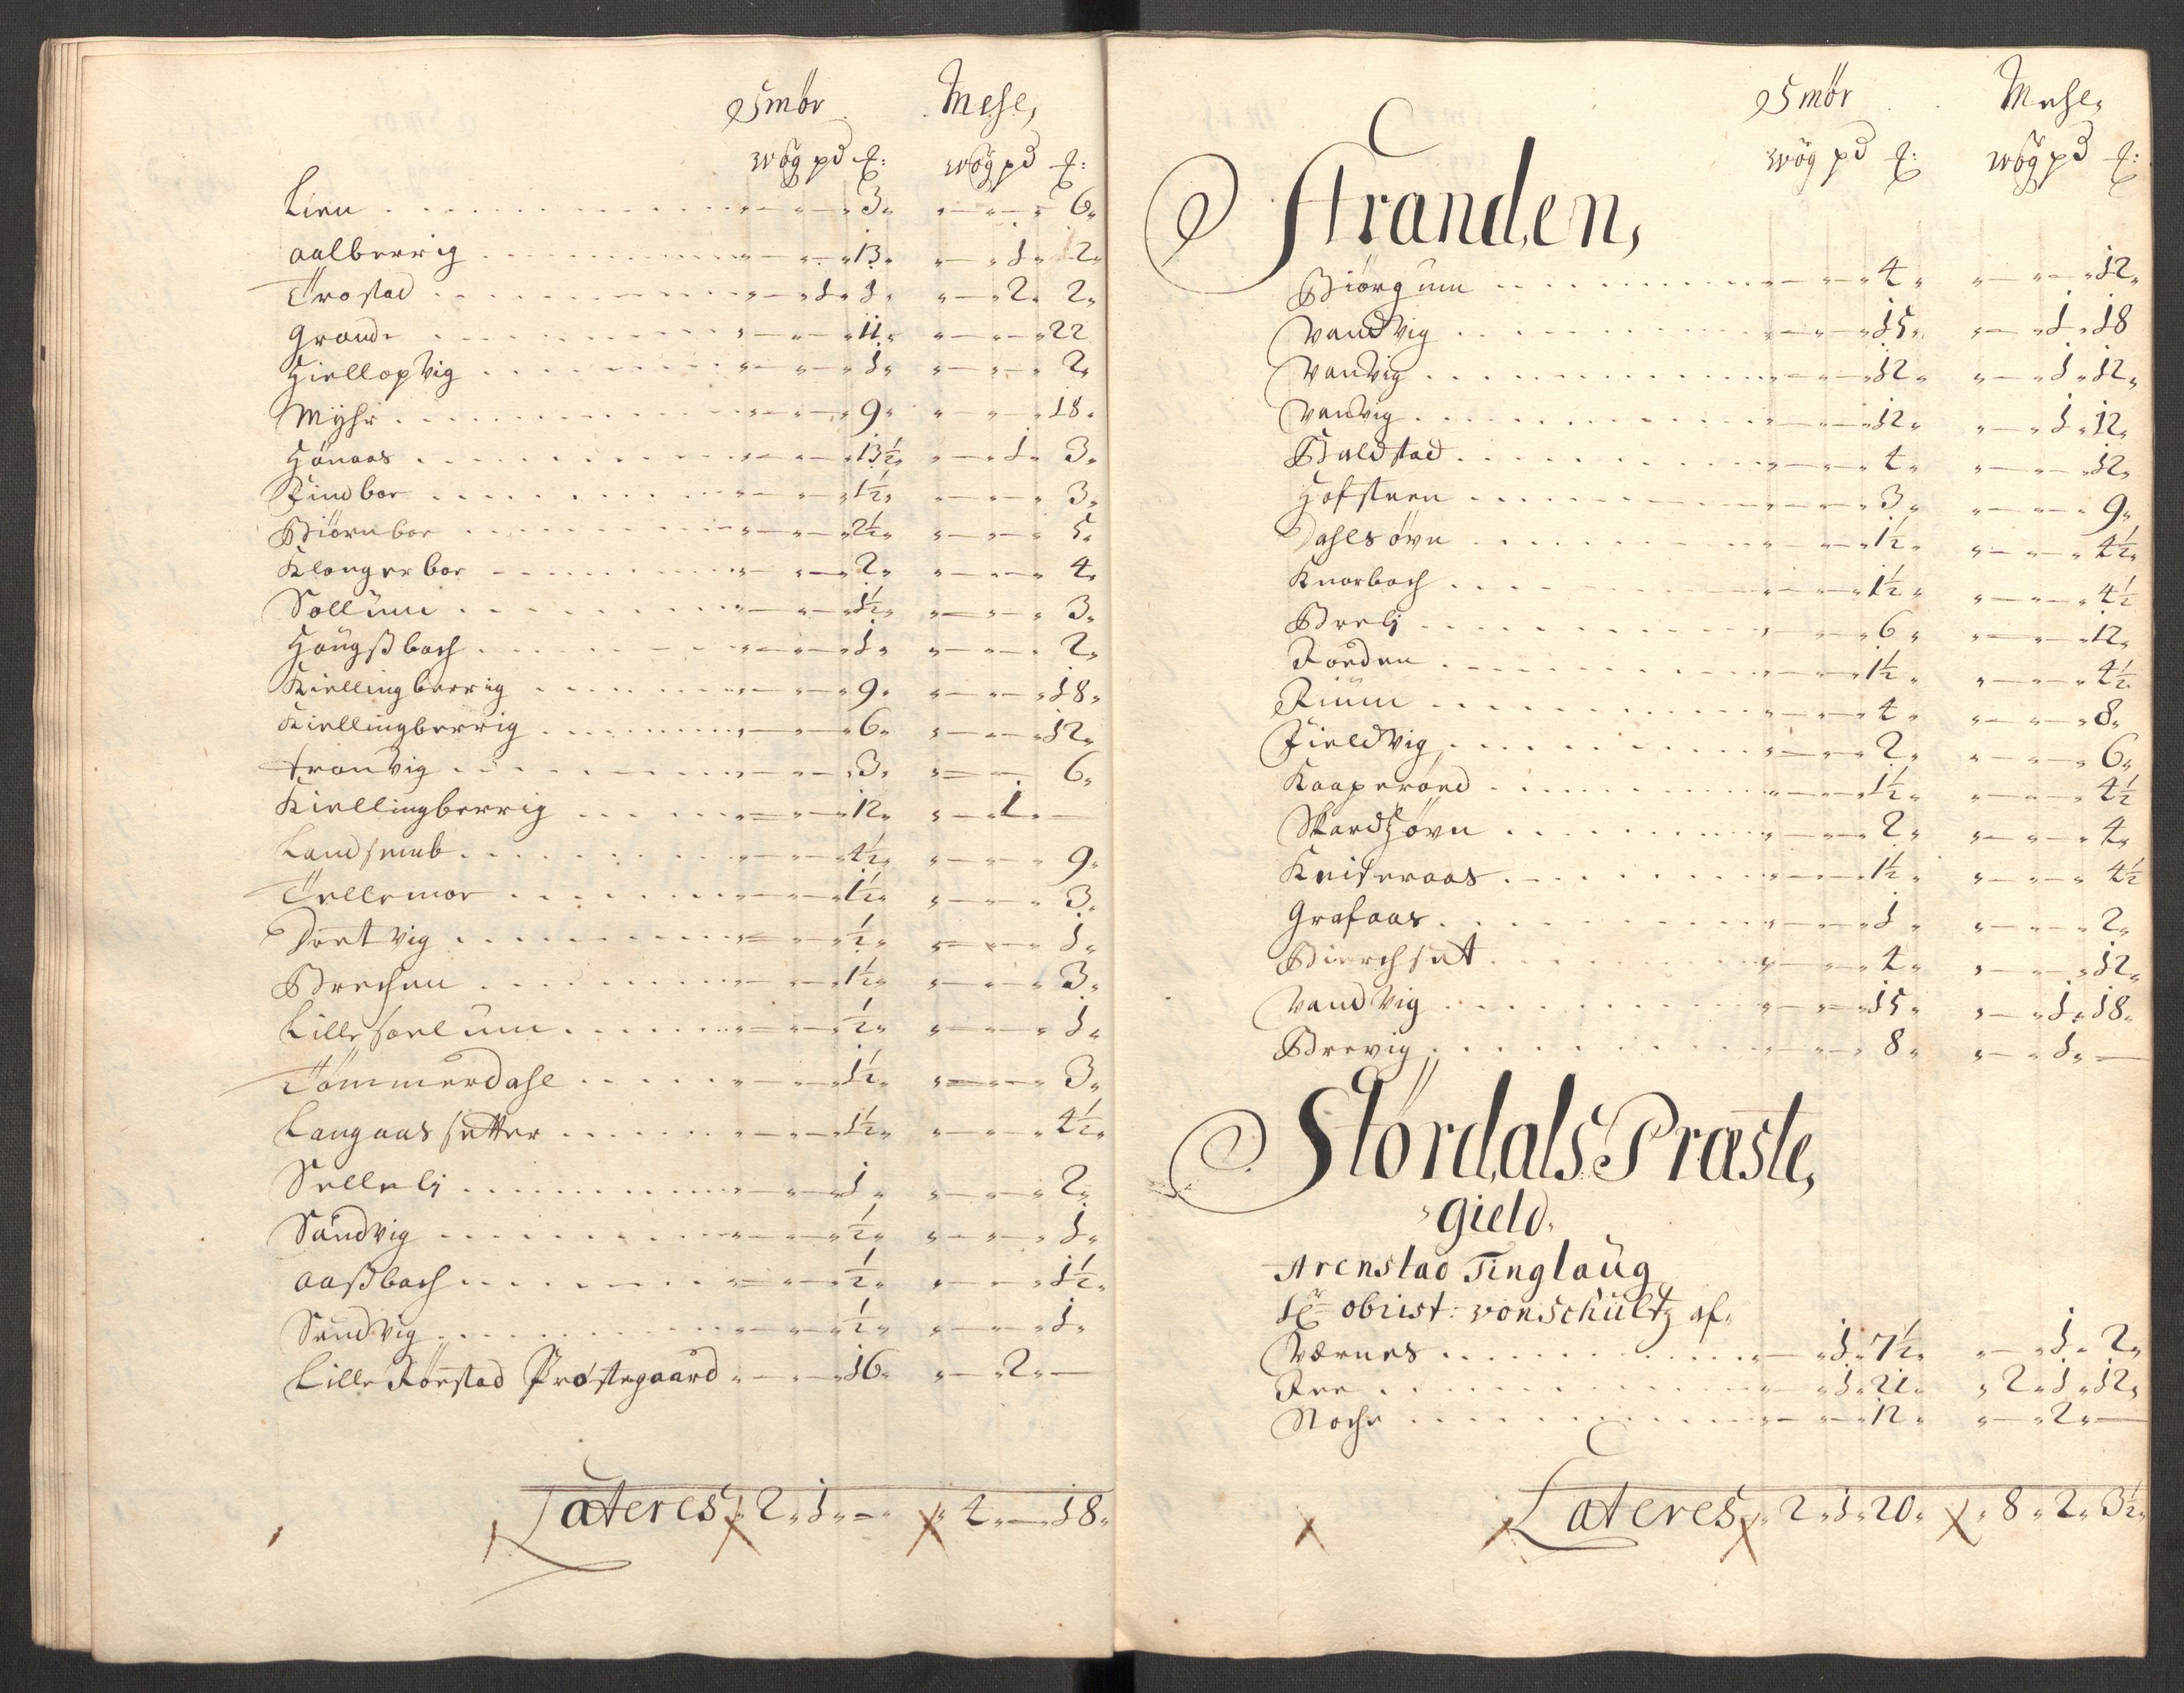 Smör Mehl,
wög pd ℔: wög pd ℔:
Lien . . . „ — „ — „ 3 „ „ — „ — „ 6 „
Aalberrig . . . „ — „ — „ 13 „ „ — „ 1 „ 2 „
Trostad . . . „ — „ 1 „ 1 „ „ — „ 2 „ 2 „
Grande . . . „ — „ — „ 11 „ „ — „ — „ 22
Hiellopvig . . . „ — „ — „ 1 „ „ — „ — „ 2 „
Myhr . . . „ — „ — „ 9 „ „ — „ — „ 18 „
Hönaas . . . „ — „ — „ 13½ „ „ — „ 1 „ 3 „
Findboe . . . „ — „ — „ 1½ „ „ — „ — „ 3 „
Biörnboe . . . „ — „ — „ 2½ „ „ — „ — „ 5 „
Klongerboe . . . „ — „ — „ 2 „ „ — „ — „ 4 „
Sollüm . . . „ — „ — „ 1½ „ „ — „ — „ 3 „
Haugsbach . . . „ — „ — „ 1 „ „ — „ — „ 2 „
Kiellingberrig . . . „ — „ — „ 9 „ „ — „ — „ 18 „
Kiellingberrig . . . „ — „ — „ 6 „ „ — „ — „ 12 „
Tronvig . . . „ — „ — „ 3 „ „ — „ — „ 6 „
Kiellingberrig . . . „ — „ — „ 12 „ „ — „ 1 „ —
Landsemb . . . „ — „ — „ 4½ „ „ — „ — „ 9 „
Tellemoe . . . „ — „ — „ 1½ „ „ — „ — „ 3 „
Soetvig . . . „ — „ — „ ½ „ „ — „ — „ 1 „
Brechen . . . „ — „ — „ 1½ „ „ — „ — „ 3 „
Lille soelum . . . „ — „ — „ ½ „ „ — „ — „ 1 „
Tömmerdahl . . . „ — „ — „ 1½ „ „ — „ — „ 3 „
Langaassetter . . . „ — „ — „ 1½ „ „ — „ — „ 4½ „
Sellelj . . . „ — „ — „ 1 „ „ — „ — „ 2 „
Sandvig . . . „ — „ — „ ½ „ „ — „ — „ 1 „
Aassbach . . . „ — „ — „ ½ „ „ — „ — „ 1½ „
Sundvig . . . „ — „ — „ ½ „ „ — „ — „ 1 „
Lille Rörstad Præstegaard „ — „ — „ 16 „ „ — „ 2 „ —
Lateres „ 2 „ 1 „ — „ „ 4 „ — „ 18 „
Smör Mehl,
wög pd ℔: wög pd ℔:
Stranden,
Biörgum . . . „ — „ — „ 4 „ „ — „ — „ 12 „
Vandvig . . . „ — „ — „ 15 „ „ — „ 1 „ 18
Vanvig . . . „ — „ — „ 12 „ „ — „ 1 „ 12 „
Vanvig . . . „ — „ — „ 12 „ „ — „ 1 „ 12 „
Buldstad . . . „ — „ — „ 4 „ „ — „ — „ 12 „
Hofsteen . . . „ — „ — „ 3 „ „ — „ — „ 9 „
Dahlsövn . . . „ — „ — „ 1½ „ „ — „ — „ 4½ „
Knorbach . . . „ — „ — „ 1½ „ „ — „ — „ 4½
Brelj . . . „ — „ — „ 6 „ „ — „ — „ 12 „
Roeden . . . „ — „ — „ 1½ „ „ — „ — „ 4½
Rium . . . „ — „ — „ 4 „ „ — „ — „ 8 „
Fieldvig . . . „ — „ — „ 2 „ „ — „ — „ 6 „
Kaaperöed . . . „ — „ — „ 1½ „ „ — „ — „ 4½
Skardsövn . . . „ — „ — „ 2 „ „ — „ — „ 4 „
Kniseraas . . . „ — „ — „ 1½ „ „ — „ — „ 4½
Grafaas . . . „ — „ — „ 1 „ „ — „ — „ 2 „
Bierchset . . . „ — „ — „ 4 „ „ — „ — „ 12 „
Vandvig . . . „ — „ — „ 15 „ „ — „ 1 „ 18 „
Brevig . . . „ — „ — „ 8 „ „ — „ 1 „ —
Stördals Præste,
„ Gield,
Arenstad Tinglaüg
Hr obrist: von Schültz af,
Værnes . . . „ — „ 1 „ 7½ „ „ — „ 1 „ 2 „
Ree . . . „ — „ 1 „ 21 „ „ 2 „ 1 „ 12 „
Moche . . . „ — „ — „ 12 „ „ — „ 2 „ —
Lateres „ 2 „ 1 „ 20 „ „ 8 „ 2 „ 3½ „